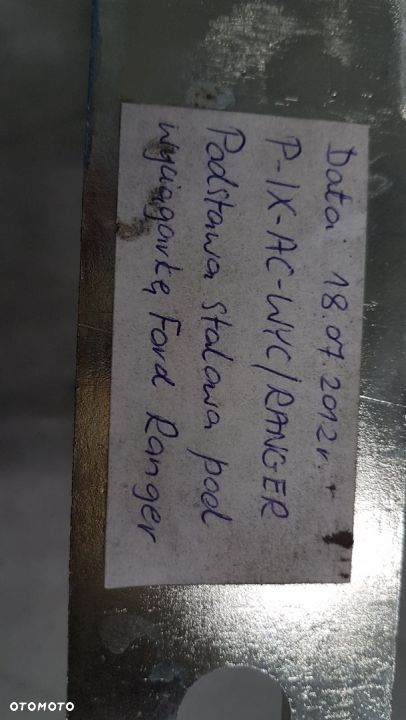 Data 18.07.2012r.
P-IX-AC-WYC/RANGER
Podstawa stalowa pod
wyciągarkę Ford Ranger
OTOMOTO